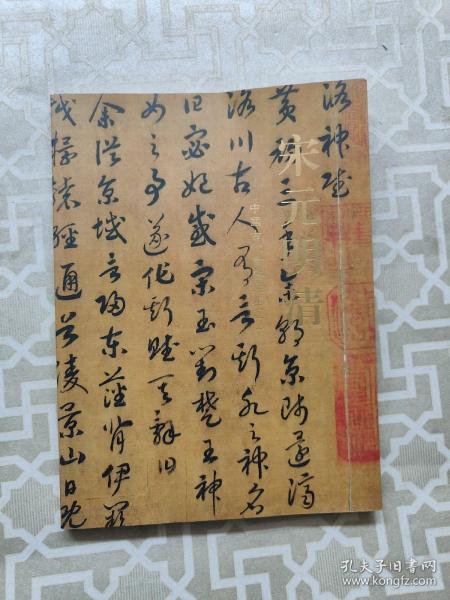 洛神賦
黃初三年余朝京師還濟
洛川古人有言斯水之神名
曰宓妃感宋玉對楚王神
女之事遂作斯賦其辭曰
余從京域言歸東藩背伊闕
越轘轅經通谷陵景山日既
宋元明清
中國
孔夫子旧书网
www.kongfz.com